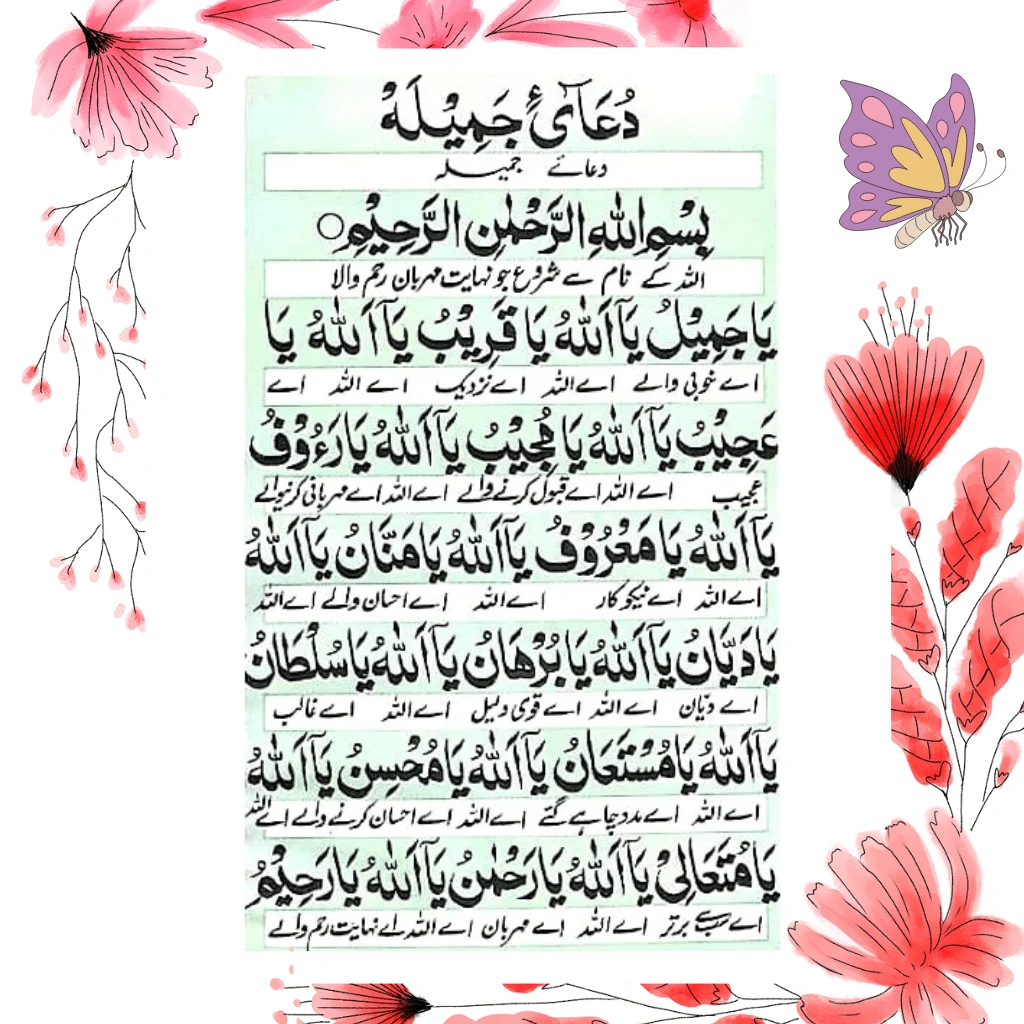 دُعَآئِ جَمِيْلَهْ
دعائے جمیلہ
بِسْمِ اللهِ الرَّحْمٰنِ الرَّحِيْمِ
اللہ کے نام سے شروع جو نہایت مہربان رحم والا
يَا جَمِيْلُ يَآ اَللهُ يَا قَرِيْبُ يَآ اَللهُ يَا
اے خوبی والے اے اللہ اے نزدیک اے اللہ اے
عَجِيْبُ يَآ اَللهُ يَا مُجِيْبُ يَآ اَللهُ يَا رَءُوْفُ
عجیب اے اللہ اے قبول کرنے والے اے اللہ اے مہربانی کرنیوالے
يَآ اَللهُ يَا مَعْرُوْفُ يَآ اَللهُ يَا مَنَّانُ يَآ اَللهُ
اے اللہ اے نیکوکار اے اللہ اے احسان والے اے اللہ
يَا دَيَّانُ يَآ اَللهُ يَا بُرْهَانُ يَآ اَللهُ يَا سُلْطَانُ
اے دیّان اے اللہ اے قوی دلیل اے اللہ اے غالب
يَآ اَللهُ يَا مُسْتَعَانُ يَآ اَللهُ يَا مُحْسِنُ يَآ اَللهُ
اے اللہ اے مدد چاہے گئے اے اللہ اے احسان کرنے والے اے اللہ
يَا مُتَعَالِيْ يَآ اَللهُ يَا رَحْمٰنُ يَآ اَللهُ يَا رَحِيْمُ
اے سب سے برتر اے اللہ اے مہربان اے اللہ اے نہایت رحم والے